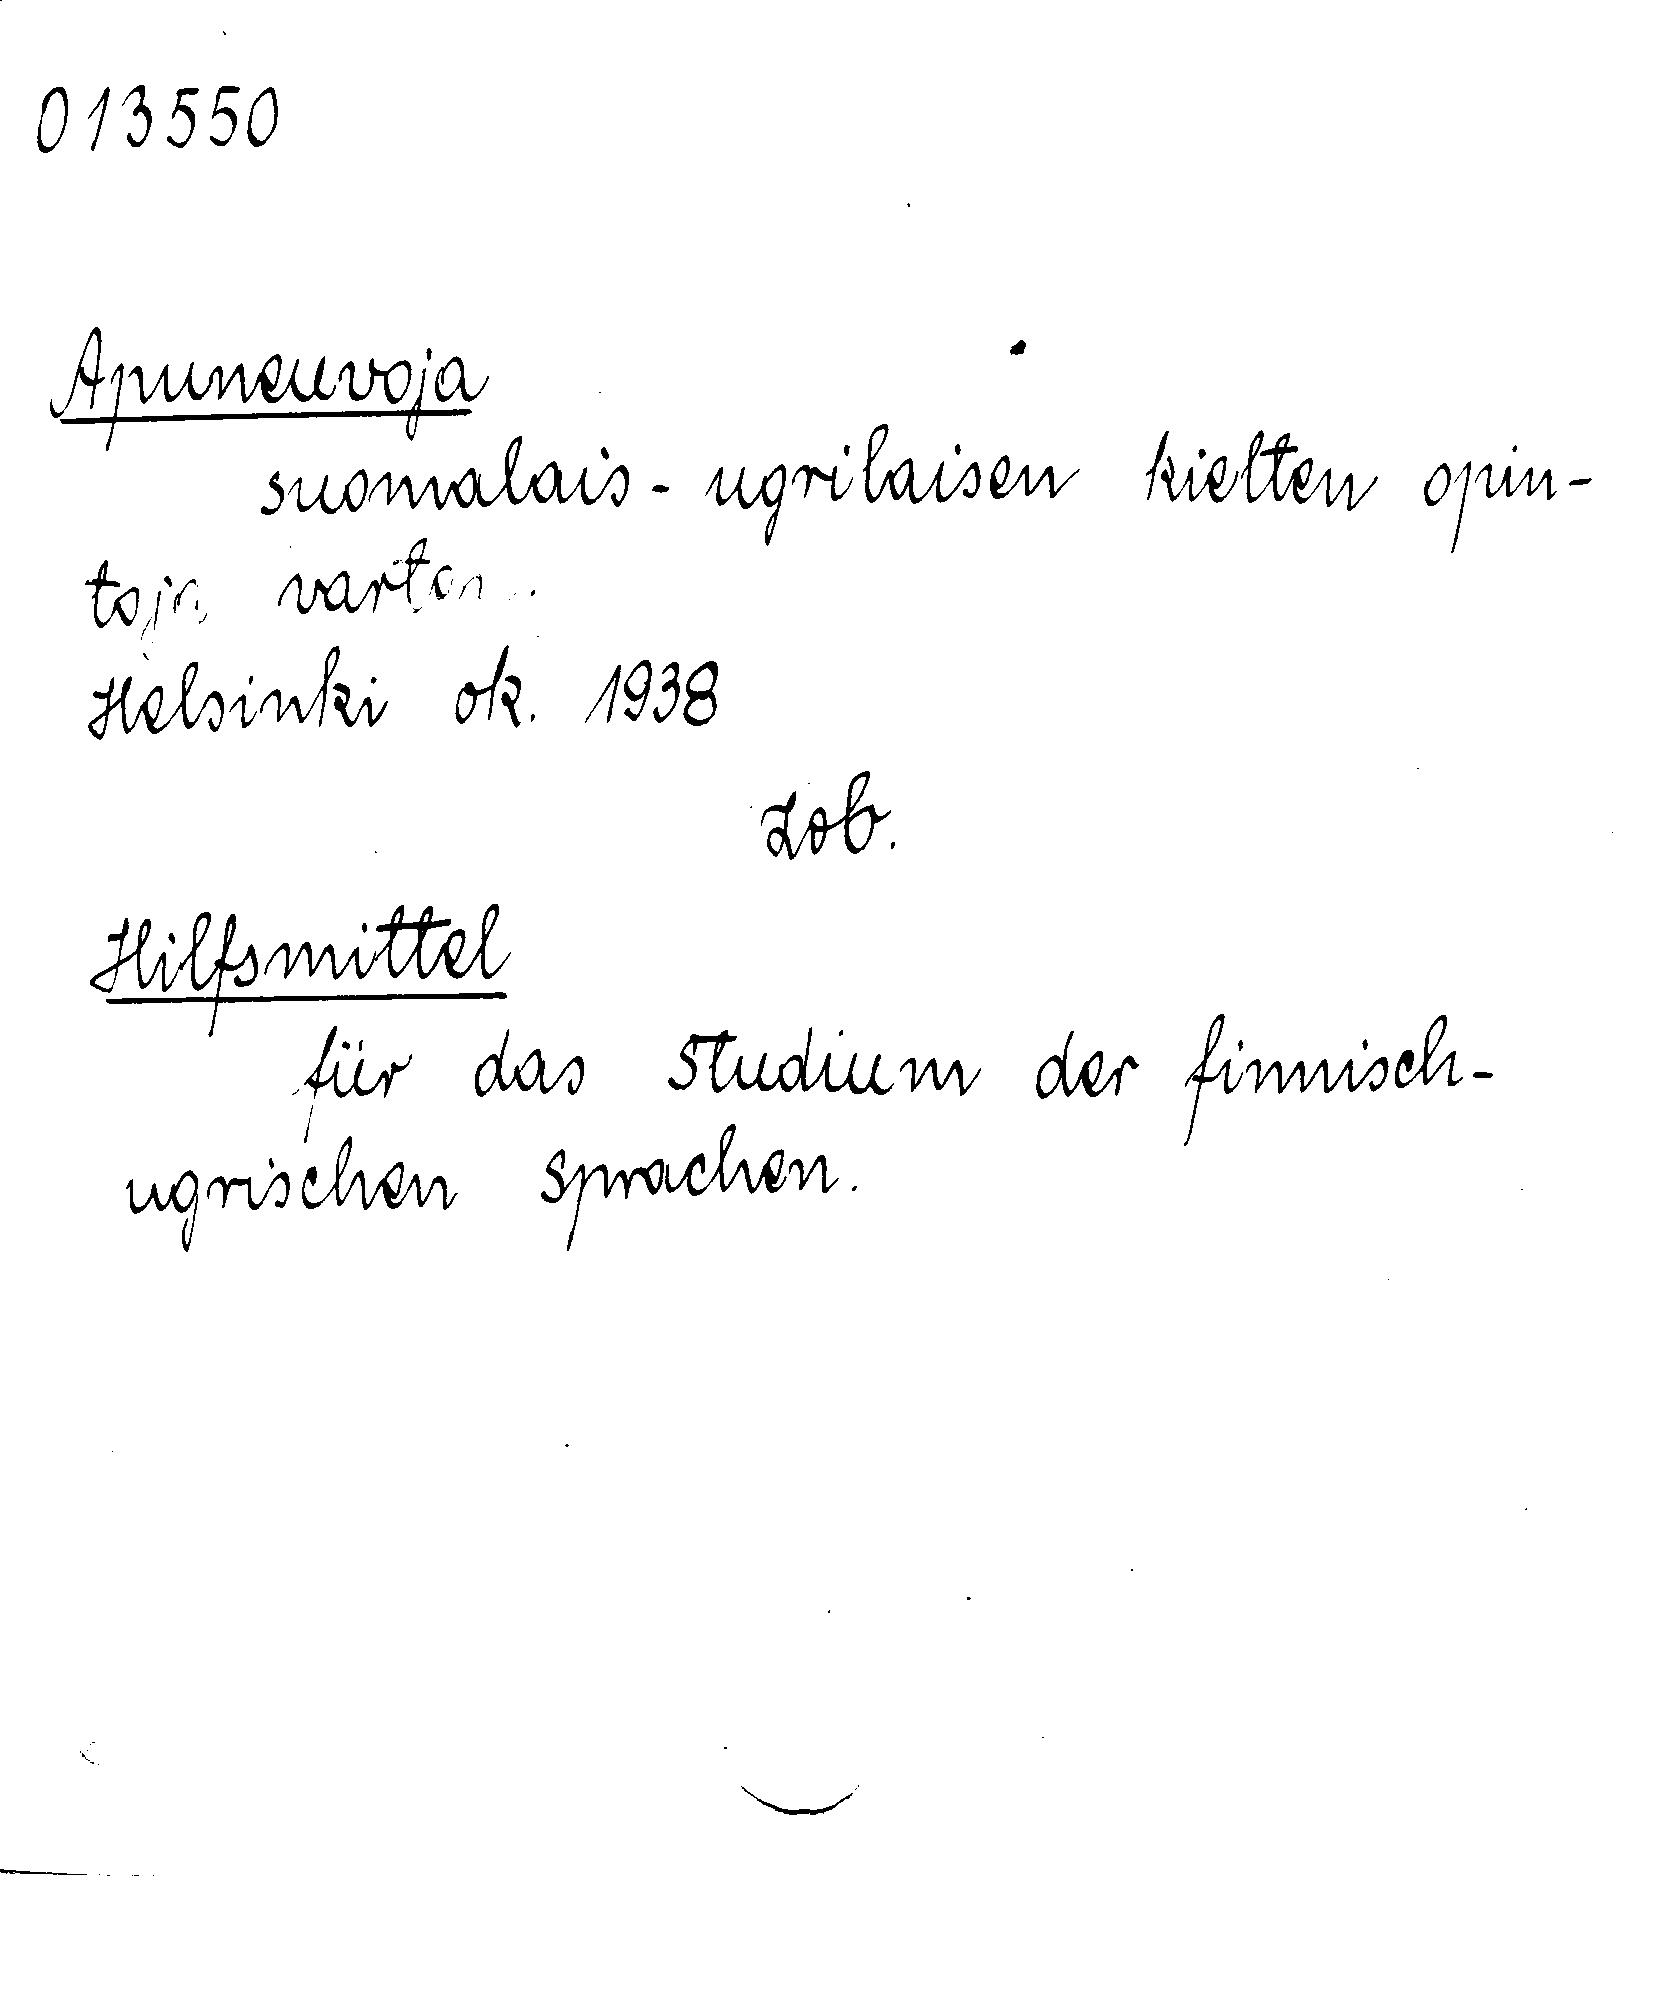 013550
Apuneuvoja
suomalais-ugrilaisen kielten opin-
toja varten.
Helsinki ok. 1938
Zob.
Hilfsmittel
für das Studium der finnisch-
ugrischen Sprachen.